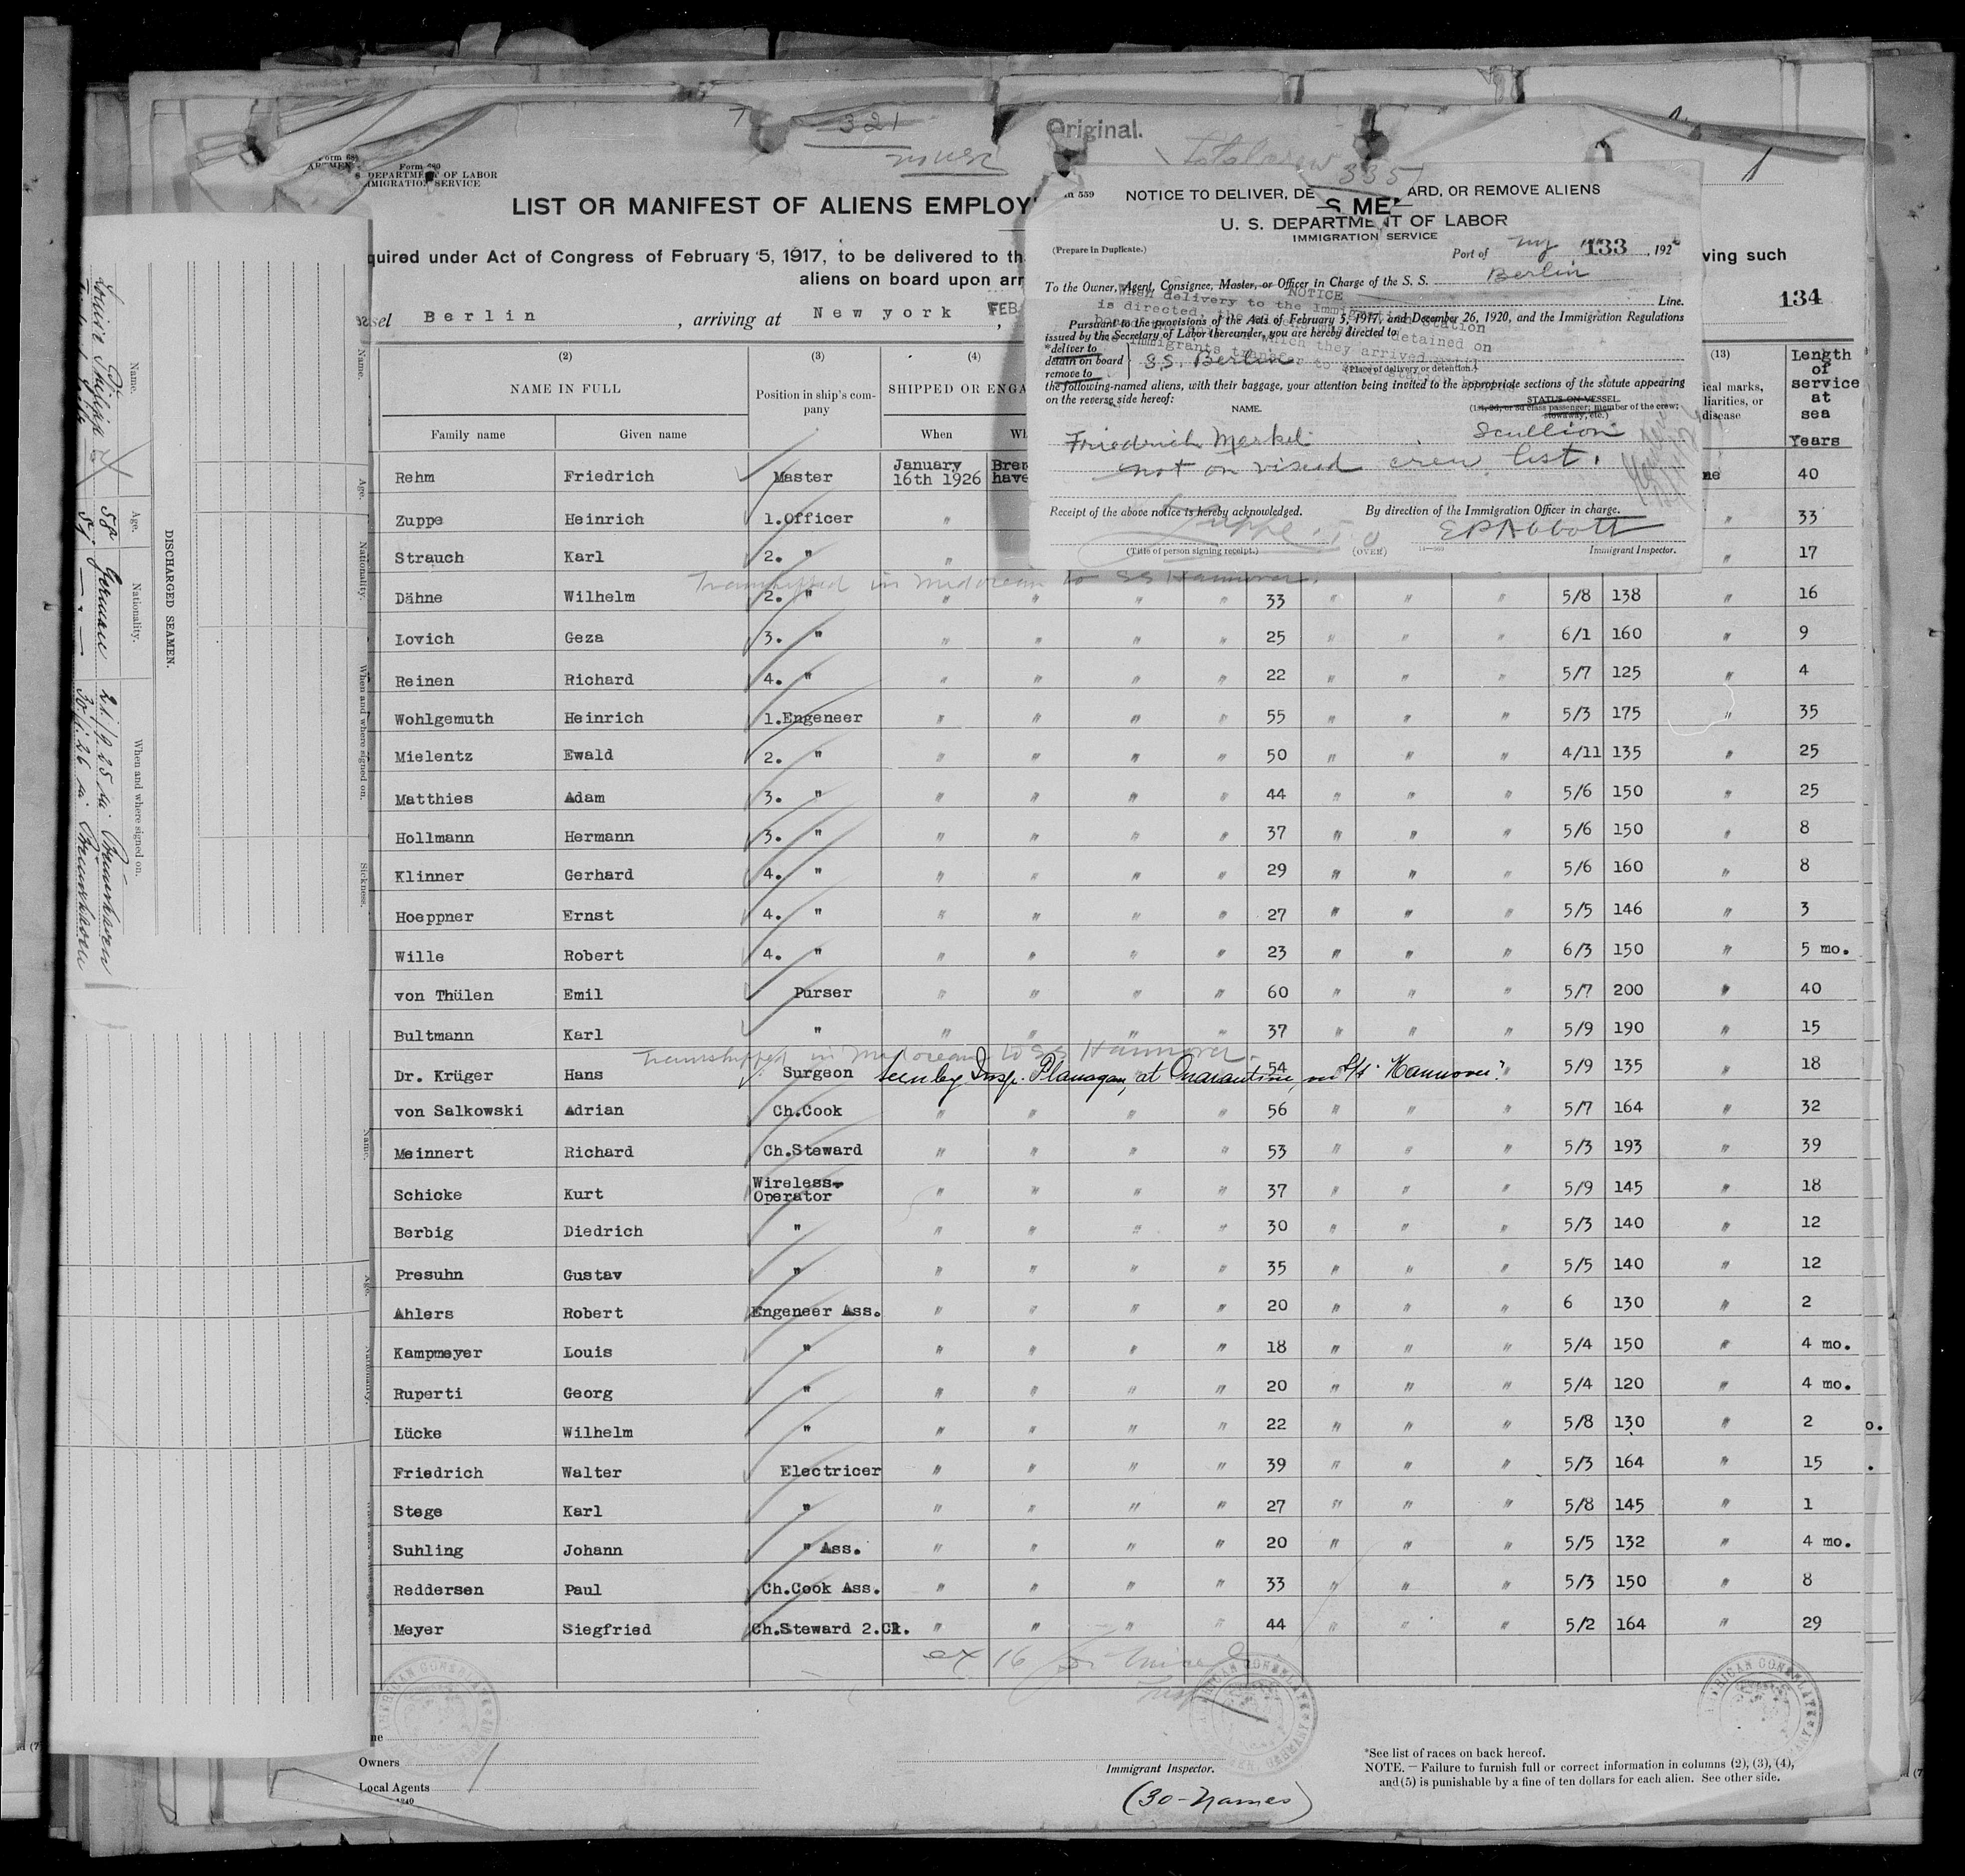 321
Original.
335
Form 680
DEPARTMENT OF LABOR
IMMIGRATION SERVICE
LIST OR MANIFEST OF ALIENS EMPLOY
S ME
quired under Act of Congress of February 5, 1917, to be delivered to th
ving such
aliens on board upon arr
134
sel Berlin , arriving at New york FEB
559
NOTICE TO DELIVER, DE ARD, OR REMOVE ALIENS
U. S. DEPARTMENT OF LABOR
IMMIGRATION SERVICE
(Prepare in Duplicate.)
Port of ny 133 , 192
To the Owner, Agent, Consignee, Master, or Officer in Charge of the S. S. Berlin
Line.
NOTICE
When delivery to the Immigration Station
is directed,
detained on
which they arrived until
Pursuant to the provisions of the Acts of February 5, 1917, and December 26, 1920, and the Immigration Regulations
issued by the Secretary of Labor thereunder, you are hereby directed to
*deliver to
detain on board
remove to
S.S. Berlin
(Place of delivery or detention.)
the following-named aliens, with their baggage, your attention being invited to the appropriate sections of the statute appearing
on the reverse side hereof:
NAME.
STATUS ON VESSEL
(1st, 2d, or 3d class passenger; member of the crew;
stowaway, etc.)
Friedrich Merkel Scullion
not on visaed crew list.
Receipt of the above notice is hereby acknowledged.
By direction of the Immigration Officer in charge.
Zuppe I.O
E P Abbott
(Title of person signing receipt.)
(OVER)
Immigrant Inspector.
(2) (3) (4) (13)
NAME IN FULL Position in ship's com-
pany SHIPPED OR ENGA
Family name Given name When Wh
ical marks,
liarities, or
disease
Length
of
service
at
sea
Years
Rehm Friedrich Master January
16th 1926 Brem
have ne 40
Zuppe Heinrich 1.Officer " " 33
Strauch Karl 2. " " " 17
Transhipped in Midocean to SS Hannover.
Dähne Wilhelm 2. " " " " " 33 " " " 5/8 138 " 16
Lovich Geza 3. " " " " " 25 " " " 6/1 160 " 9
Reinen Richard 4. " " " " " 22 " " " 5/7 125 " 4
Wohlgemuth Heinrich 1.Engeneer " " " " 55 " " " 5/3 175 " 35
Mielentz Ewald 2. " " " " " 50 " " " 4/11 135 " 25
Matthies Adam 3. " " " " " 44 " " " 5/6 150 " 25
Hollmann Hermann 3. " " " " " 37 " " " 5/6 150 " 8
Klinner Gerhard 4. " " " " " 29 " " " 5/6 160 " 8
Hoeppner Ernst 4. " " " " " 27 " " " 5/5 146 " 3
Wille Robert 4. " " " " " 23 " " " 6/3 150 " 5 mo.
von Thülen Emil Purser " " " " 60 " " " 5/7 200 " 40
Bultmann Karl " " " " " 37 " " " 5/9 190 " 15
Transhipped in Midocean to SS Hannover.
Dr. Krüger Hans Surgeon 54 " 5/9 135 " 18
Seen by Insp. Flanagan, at Quarantine, on S/S Hannover.
von Salkowski Adrian Ch.Cook " " " " 56 " " " 5/7 164 " 32
Meinnert Richard Ch.Steward " " " " 53 " " " 5/3 193 " 39
Schicke Kurt Wireless-
Operator " " " " 37 " " " 5/9 145 " 18
Berbig Diedrich " " " " " 30 " " " 5/3 140 " 12
Presuhn Gustav " " " " " 35 " " " 5/5 140 " 12
Ahlers Robert Engeneer Ass. " " " " 20 " " " 6 130 " 2
Kampmeyer Louis " " " " " 18 " " " 5/4 150 " 4 mo.
Ruperti Georg " " " " " 20 " " " 5/4 120 " 4 mo.
Lücke Wilhelm " " " " " 22 " " " 5/8 130 " 2
Friedrich Walter Electricer " " " " 39 " " " 5/3 164 " 15
Stege Karl " " " " " 27 " " " 5/8 145 " 1
Suhling Johann " Ass. " " " " 20 " " " 5/5 132 " 4 mo.
Reddersen Paul Ch.Cook Ass. " " " " 33 " " " 5/3 150 " 8
Meyer Siegfried Ch.Steward 2.Cl. " " " " 44 " " " 5/2 164 " 29
ex 16
AMERICAN CONSULATE
Owners
Local Agents
Immigrant Inspector.
(30-Names)
*See list of races on back hereof.
NOTE. — Failure to furnish full or correct information in columns (2), (3), (4),
and (5) is punishable by a fine of ten dollars for each alien. See other side.
DISCHARGED SEAMEN.
Name. Age. Nationality. When and where signed on.
58 German 21/9.25 in Bremerhaven
Name. Age. Nationality. When and where signed on. Sickness.